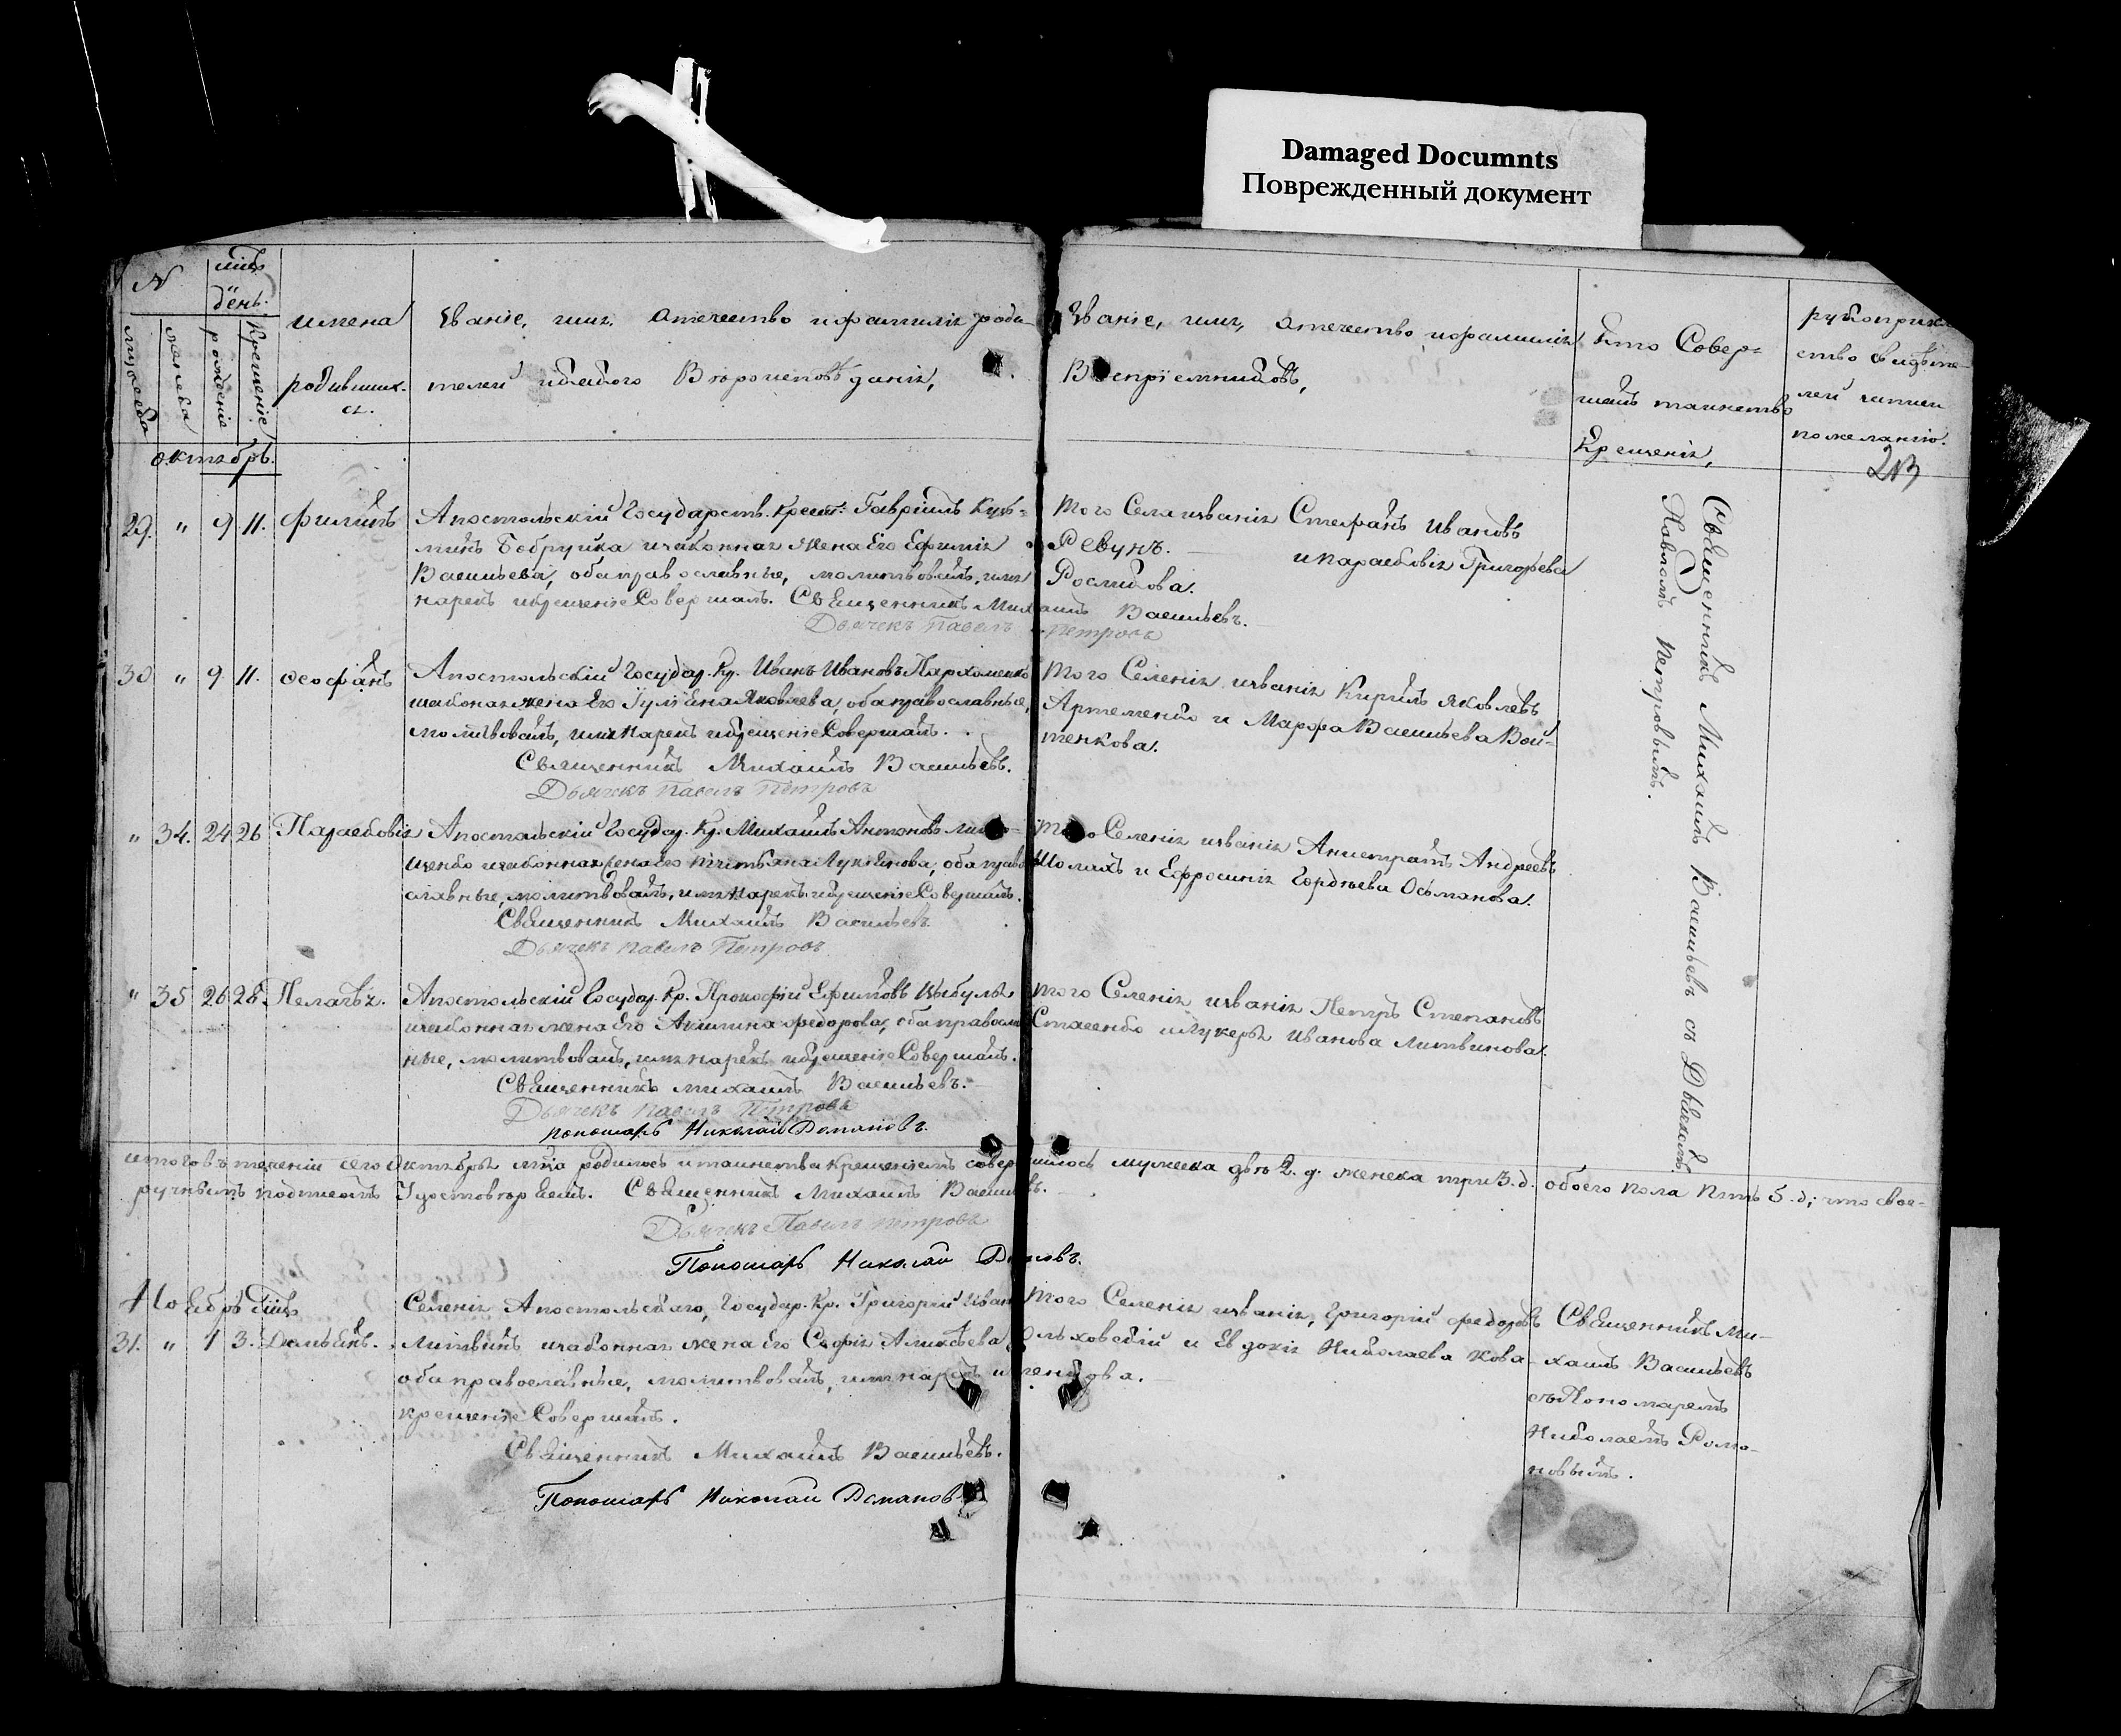 Damaged Documnts
Поврежденный документ
N
мцъ
день.
мужеска
женска
рожденіе
крещеніе
имена
родивших.
ся.
Званіе, имя, Отечество и фамилія роди-
телей и какого Вѣроисповѣданія,
Званіе, имя, отечество и фамилія
Воспріемниковъ,
Кто Совер-
шалъ таинство
Крещенія,
рукоприк
ство свидѣте-
лей записи
по желанію.
213
октябрь.
29. " 9 11. Филипъ
Апостольскій Государств. Крест. Гавріилъ Кузь-
минъ Бобруйка и законная Жена Его Ефимія
Васильева, оба православные, молитвовалъ, имя
нарекъ и крещеніе Совершалъ. Священникъ Михаилъ Васильевъ.
Дьячекъ Павелъ Петровъ
Того Села и званія Стефанъ Ивановъ
Ревунъ. и Парасковія Григорьева
Рослякова.
30 " 9 11. Феофанъ
Апостольскій Государ. Кр. Иванъ Ивановъ Пархоменко
и законная жена Его Іуліана Яковлева, оба православные,
молитвовалъ, имя нарекъ и крещеніе Совершалъ.
Священникъ Михаилъ Васильевъ.
Дьячекъ Павелъ Петровъ
Того Селенія и званія Кирилъ Яковлевъ
Артеменко и Марфа Васильева Вой-
тенкова.
" 34. 24 26 Парасковія
Апостольскій Государ. Кр. Михаилъ Антоновъ
и законная жена Его Татіана Лукьянова, оба право
славные, молитвовалъ, имя нарекъ и крещеніе Совершалъ.
Священникъ Михаилъ Васильевъ
Дьячекъ Павелъ Петровъ
Того Селенія и званія Андреевъ
и Ефросинія Гордѣева Осьманова.
" 35 26 28. Пелагѣя.
Апостольскій Государ. Кр. Прокофій Ефимовъ Цыбуля
и законная жена Его Акилина Федорова, оба православ
ные, молитвовалъ, имя нарекъ и крещеніе Совершалъ.
Священникъ Михаилъ Васильевъ.
Дьячекъ Павелъ Петровъ
Пономарь Николай Романовъ.
Того Селенія и званія Петръ Степановъ
Стасенко и Лукерья Иванова Литвинова.
Священникъ Михаилъ Васильевъ съ Дьячкомъ
Павломъ Петровымъ.
итого въ теченіи сего Октября мца родилось и таинства крещеніемъ совершилось мужеска двѣ 2. д. женска три 3. д. обоего пола Пять 5. д; что свое-
ручнымъ подписомъ Удостовѣряемъ. Священникъ Михаилъ Васильевъ.
Дьячекъ Павелъ Петровъ
Пономарь Николай Романовъ.
Ноябрь мцъ
31. " 1 3. Даміанъ.
Селенія Апостольскаго, Государ. Кр. Григорій Иван
Литвинъ и законная жена Его Софія Алексѣева
оба православные, молитвовалъ, имя нарекъ и
крещеніе Совершалъ.
Священникъ Михаилъ Васильевъ.
Пономарь Николай Романовъ
Того Селенія и званія, Григорій Федоровъ
Ольховскій и Евдокія Николаева Кова-
ленкова.
Священникъ Ми-
хаилъ Васильевъ
съ Пономаремъ
Николаемъ Рома-
новымъ.